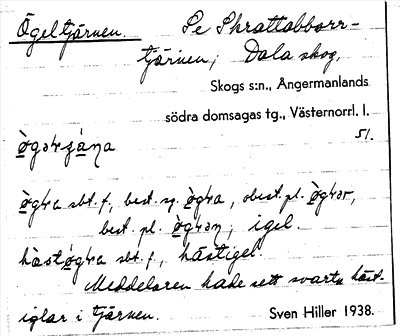 Ögeltjärnen. Se Skrattabborr-
tjärnen, Dala skog,
Skogs s:n., Ångermanlands
södra domsagas tg., Västernorrl. l.
51.
sbt. f., best. sg. , obest. pl.
best. pl. , igel.
sbt. f., hästigel.
Meddelaren hade sett svarta häst-
iglar i tjärnen. Sven Hiller 1938.